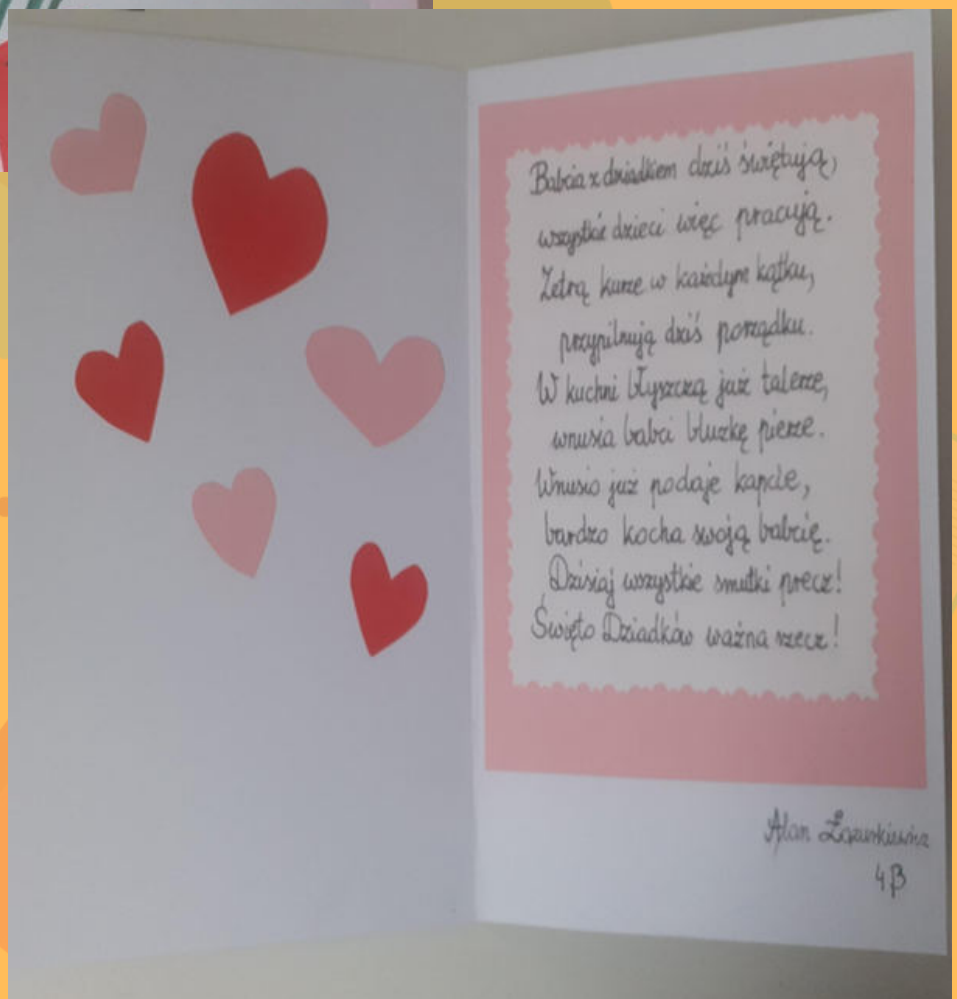 Babcia z dziadkiem dziś świętują,
wszystkie dzieci więc pracują.
Zetrą kurze w każdym kątku,
przypilnują dziś porządku.
W kuchni błyszczą już talerze,
wnusia babci bluzkę pierze.
Wnusio już podaje kapcie,
bardzo kocha swoją babcię.
Dzisiaj wszystkie smutki precz!
Święto Dziadków ważna rzecz!
Alan
4B